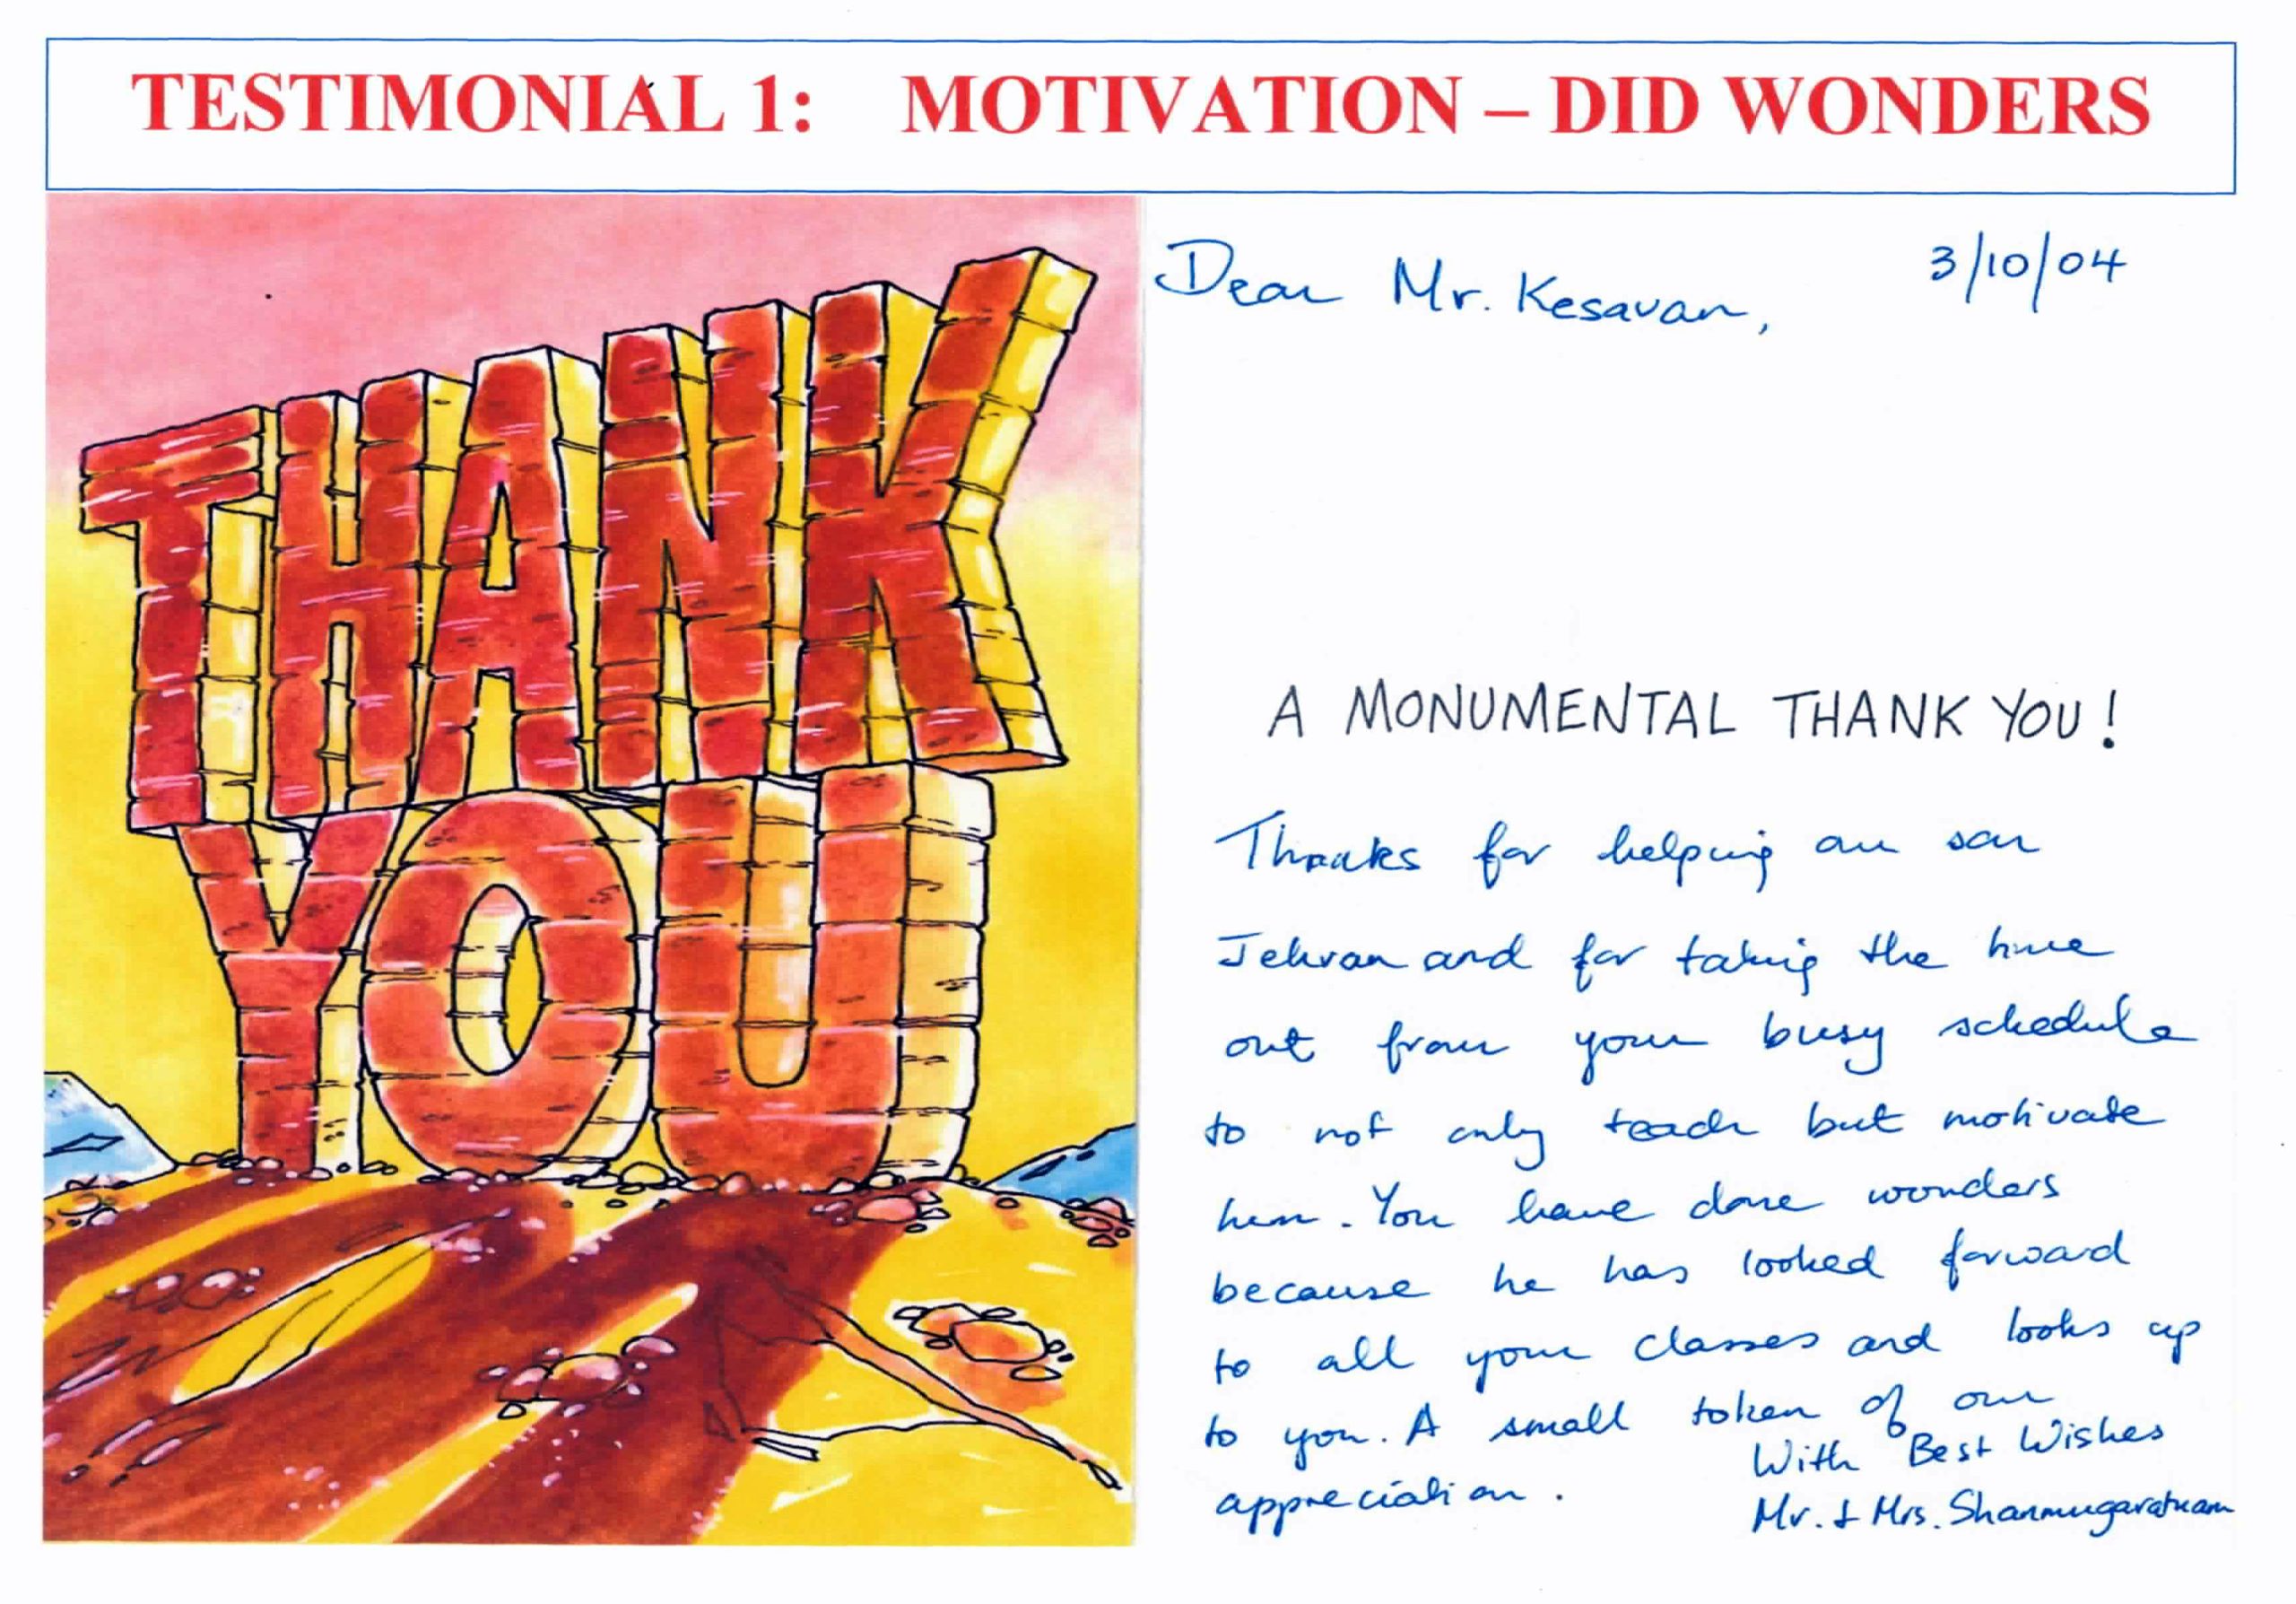 TESTIMONIAL 1: MOTIVATION – DID WONDERS
THANK
YOU
Dear Mr. Kesavan,
3/10/04
A MONUMENTAL THANK YOU!
Thanks for helping our son
Jehvan and for taking the time
out from your busy schedule
to not only teach but motivate
him. You have done wonders
because he has looked forward
to all your classes and looks up
to you. A small token of our
appreciation.
With Best Wishes
Mr. & Mrs. Shanmugaratnam